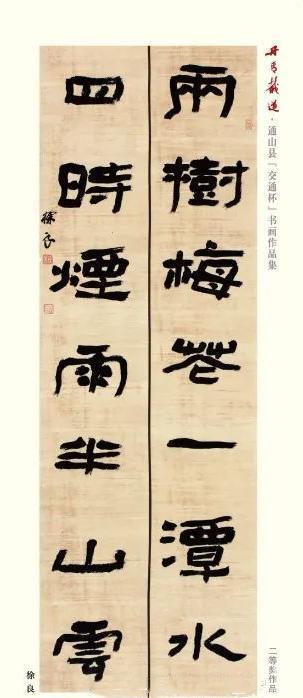 丹青载道·通山县「交通杯」书画作品集
兩樹梅花一潭水
四時煙雨半山雲
徐良
二等奖作品
徐良